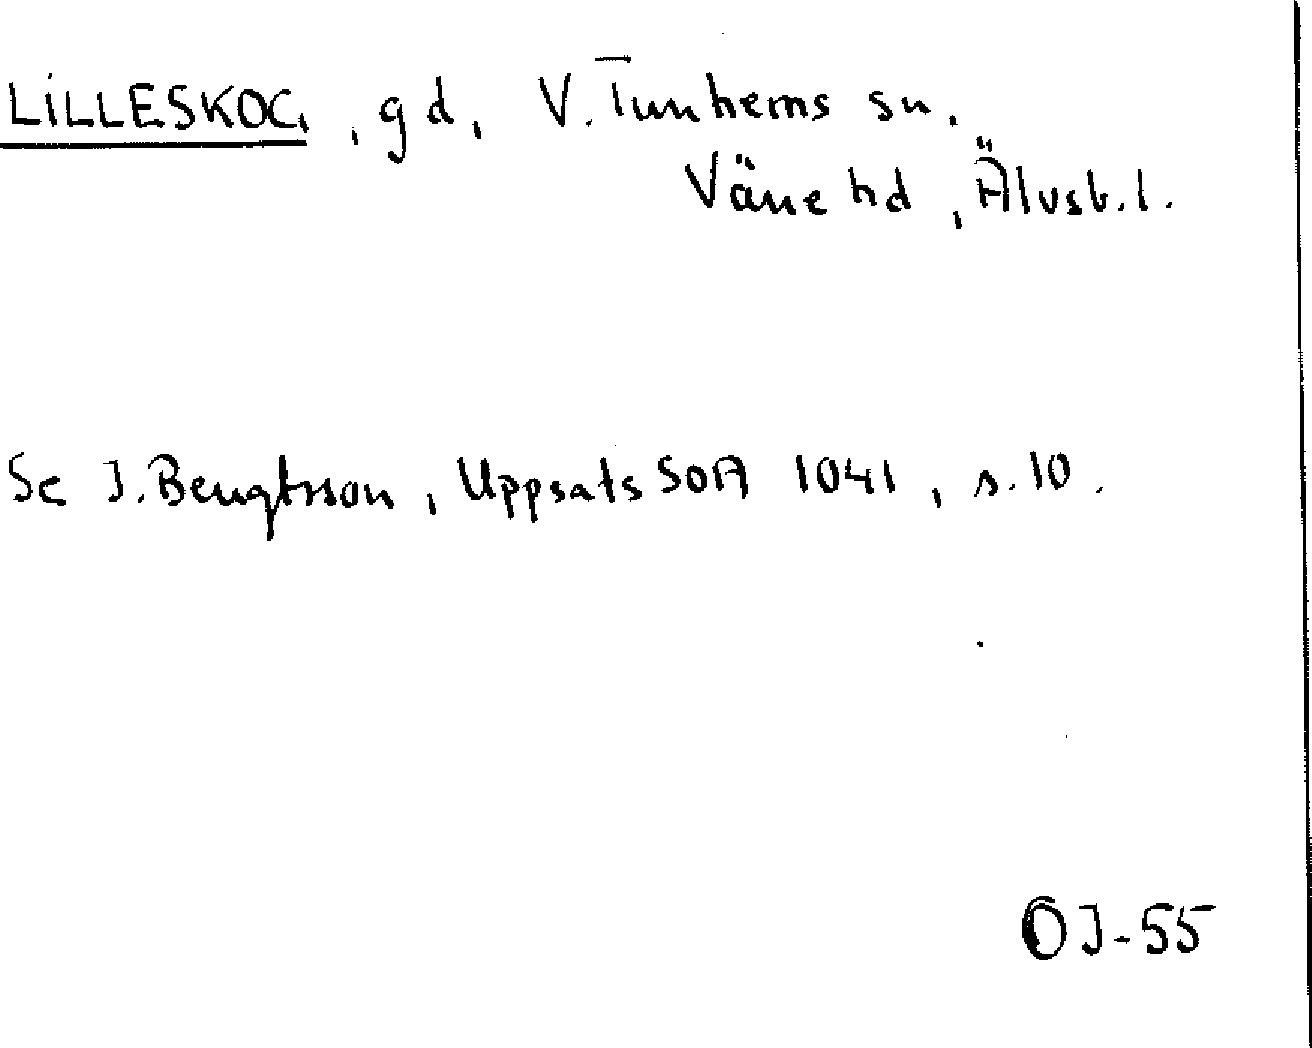 LILLESKOG, gd, V. Tunhems sn.
Väne hd, Älvsb. l.
Se J. Bengtsson, Uppsats SOA 1041, s. 10.
OJ-55